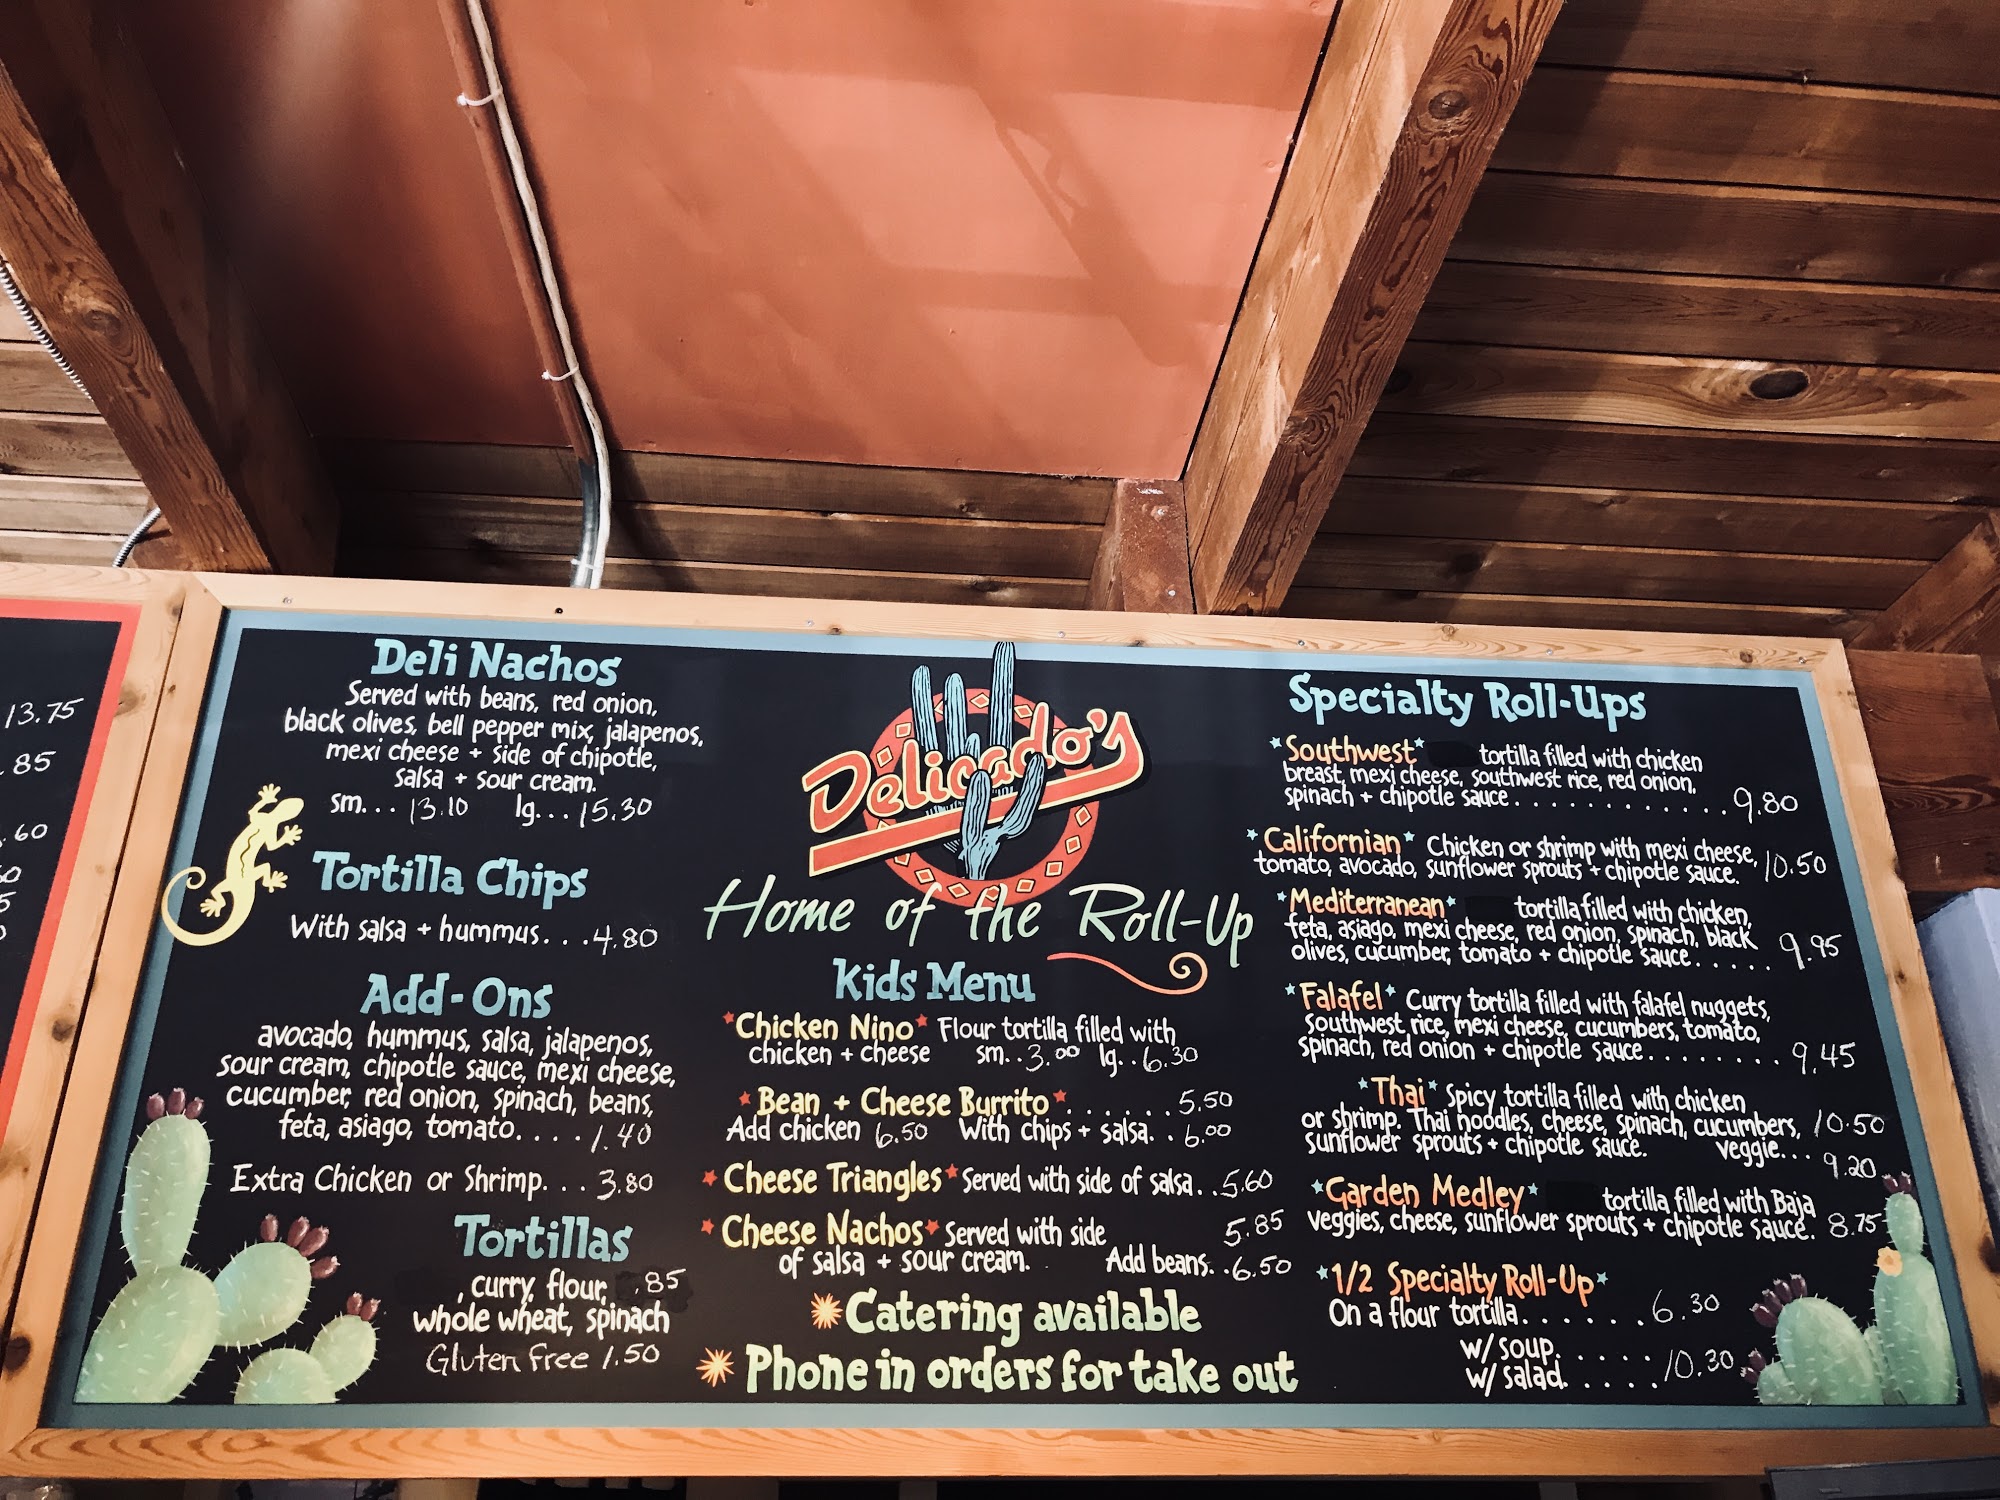 13.75
.85
.60
Deli Nachos
Served with beans, red onion,
black olives, bell pepper mix, jalapenos,
mexi cheese + side of chipotle,
salsa + sour cream.
sm... 13.10 lg... 15.30
Tortilla Chips
With salsa + hummus. . . 4.80
Add-Ons
avocado, hummus, salsa, jalapenos,
sour cream, chipotle sauce, mexi cheese,
cucumber, red onion, spinach, beans,
feta, asiago, tomato. . . . 1.40
Extra Chicken or Shrimp. . . 3.80
Tortillas
, curry, flour, .85
whole wheat, spinach
Gluten Free 1.50
Delicado's
Home of the Roll-Up
Kids Menu
*Chicken Nino* Flour tortilla filled with
chicken + cheese sm. . 3.00 lg. . 6.30
*Bean + Cheese Burrito* . . . . . . 5.50
Add chicken 6.50 With chips + salsa. . 6.00
*Cheese Triangles* Served with side of salsa. . 5.60
*Cheese Nachos* Served with side 5.85
of salsa + sour cream. Add beans. . 6.50
Catering available
Phone in orders for take out
Specialty Roll-Ups
*Southwest* tortilla filled with chicken
breast, mexi cheese, southwest rice, red onion,
spinach + chipotle sauce . . . . . . . . . . . . 9.80
*Californian* Chicken or shrimp with mexi cheese,
tomato, avocado, sunflower sprouts + chipotle sauce. 10.50
*Mediterranean* tortilla filled with chicken,
feta, asiago, mexi cheese, red onion, spinach, black
olives, cucumber, tomato + chipotle sauce. . . . . 9.95
*Falafel* Curry tortilla filled with falafel nuggets,
Southwest rice, mexi cheese, cucumbers, tomato,
spinach, red onion + chipotle sauce. . . . . . . . 9.45
*Thai* Spicy tortilla filled with chicken
or shrimp. Thai noodles, cheese, spinach, cucumbers, 10.50
sunflower sprouts + chipotle sauce. veggie... 9.20
*Garden Medley* tortilla filled with Baja
veggies, cheese, sunflower sprouts + chipotle sauce. 8.75
*1/2 Specialty Roll-Up*
On a flour tortilla. . . . . . 6.30
w/ soup. . . . .
w/ salad. . . . . 10.30